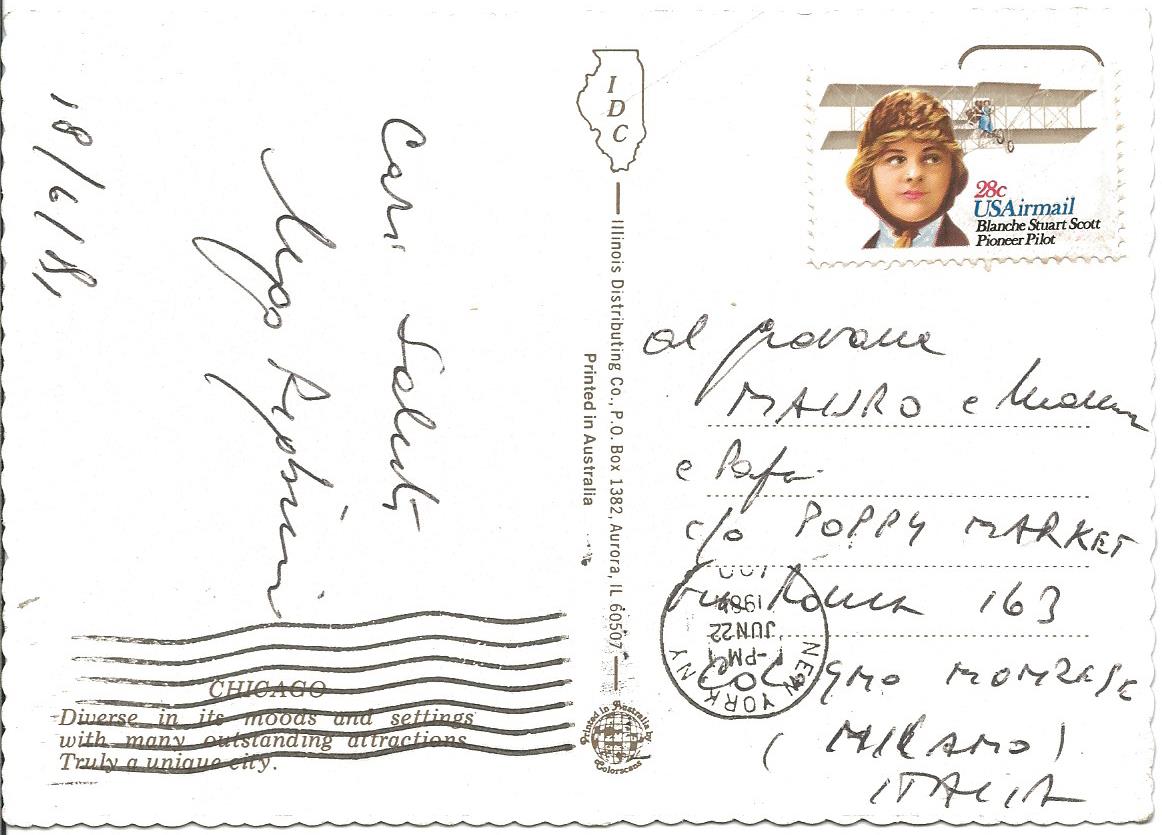 18/6/81
Cari Saluti
I
D
C
Illinois Distributing Co., P.O. Box 1382, Aurora, IL 60507
Printed in Australia
28c
USAirmail
Blanche Stuart Scott
Pioneer Pilot
al giovane
MAURO e Mamma
e Papà
c/o POPPY MARKET
via Roma 163
COLOGNO MONZESE
(MILANO)
ITALIA
NEW YORK NY
PM
JUN 22
CHICAGO
Diverse in its moods and settings
with many outstanding attractions.
Truly a unique city.
Printed in Australia by
Colorscans